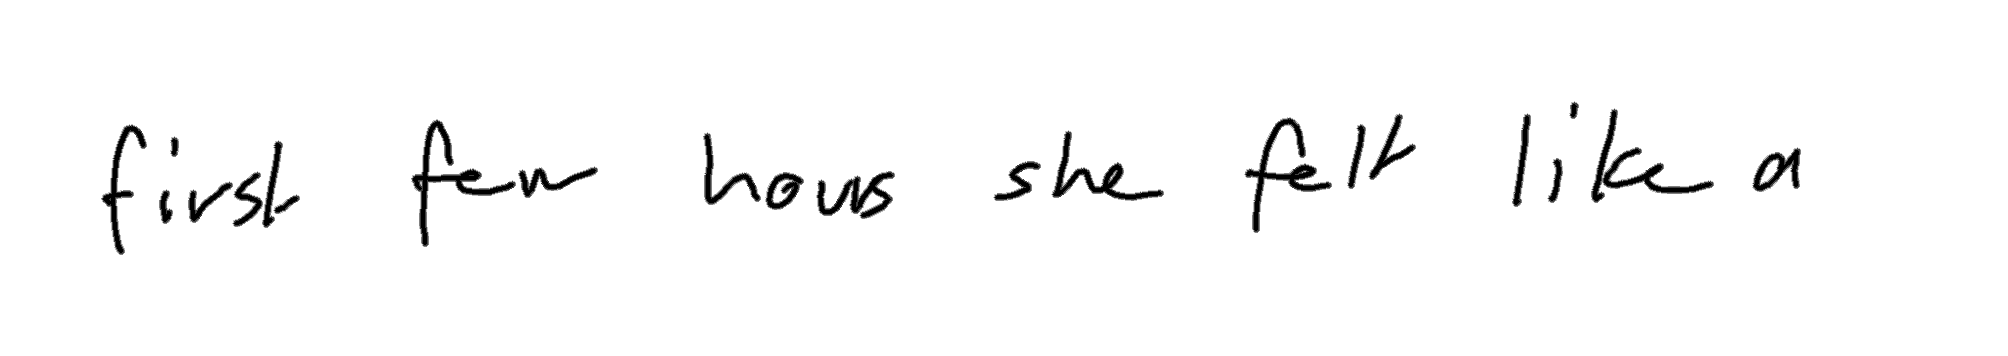 first few hours she felt like a